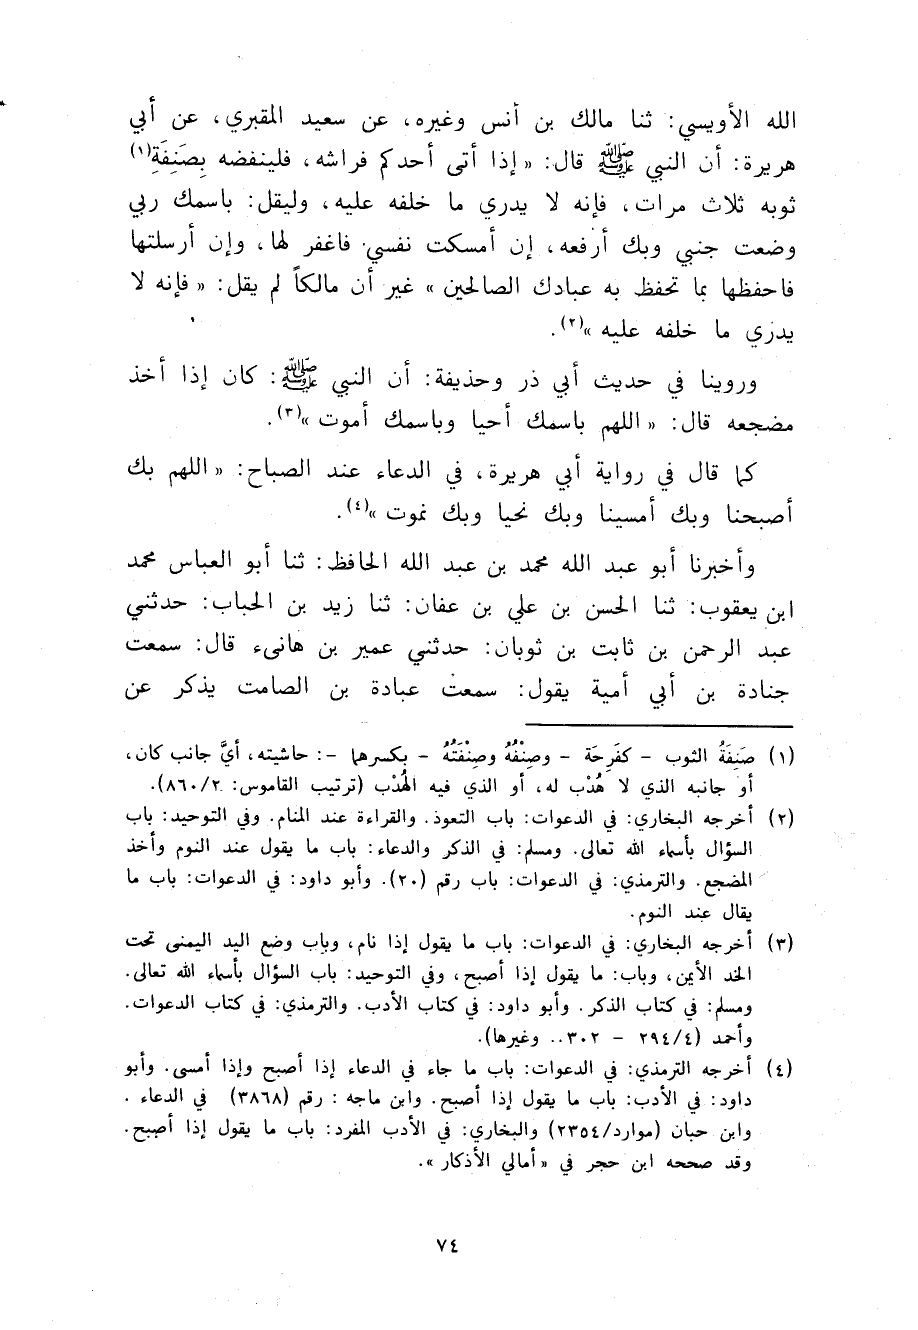 الله الأويسي: ثنا مالك بن أنس وغيره، عن سعيد المقبري، عن أبي
هريرة: أن النبي ﷺ قال: « إذا أتى أحدكم فراشه، فلينفضه بِصَنِفَةِ(١)
ثوبه ثلاث مرات، فإنه لا يدري ما خلفه عليه، وليقل: باسمك ربي
وضعت جنبي وبك أرفعه، إن أمسكت نفسي فاغفر لها، وإن أرسلتها
فاحفظها بما تحفظ به عبادك الصالحين » غير أن مالكاً لم يقل: « فإنه لا
يدري ما خلفه عليه »(٢).
وروينا في حديث أبي ذر وحذيفة: أن النبي ﷺ: كان إذا أخذ
مضجعه قال: « اللهم باسمك أحيا وباسمك أموت »(٣).
كما قال في رواية أبي هريرة، في الدعاء عند الصباح: « اللهم بك
أصبحنا وبك أمسينا وبك نحيا وبك نموت »(٤).
وأخبرنا أبو عبد الله محمد بن عبد الله الحافظ: ثنا أبو العباس محمد
ابن يعقوب: ثنا الحسن بن علي بن عفان: ثنا زيد بن الحباب: حدثني
عبد الرحمن بن ثابت بن ثوبان: حدثني عمير بن هانىء قال: سمعت
جنادة بن أبي أمية يقول: سمعت عبادة بن الصامت يذكر عن
(١) صَنِفَةُ الثوب – كفَرِحَة – وصِنْفُهُ وصِنْفَتُهُ – بكسرهما –: حاشيته، أيَّ جانب كان،
أو جانبه الذي لا هُدْب له، أو الذي فيه الهُدْب (ترتيب القاموس: ٨٦٠/٢).
(٢) أخرجه البخاري: في الدعوات: باب التعوذ. والقراءة عند المنام. وفي التوحيد: باب
السؤال بأسماء الله تعالى. ومسلم: في الذكر والدعاء: باب ما يقول عند النوم وأخذ
المضجع. والترمذي: في الدعوات: باب رقم (٢٠). وأبو داود: في الدعوات: باب ما
يقال عند النوم.
(٣) أخرجه البخاري: في الدعوات: باب ما يقول إذا نام، وباب وضع اليد اليمنى تحت
الخد الأيمن، وباب: ما يقول إذا أصبح، وفي التوحيد: باب السؤال بأسماء الله تعالى.
ومسلم: في كتاب الذكر. وأبو داود: في كتاب الأدب. والترمذي: في كتاب الدعوات.
وأحمد (٢٩٤/٤ – ٣٠٢.. وغيرها).
(٤) أخرجه الترمذي: في الدعوات: باب ما جاء في الدعاء إذا أصبح وإذا أمسى. وأبو
داود: في الأدب: باب ما يقول إذا أصبح. وابن ماجه : رقم (٣٨٦٨) في الدعاء .
وابن حبان (موارد/٢٣٥٤) والبخاري: في الأدب المفرد: باب ما يقول إذا أصبح.
وقد صححه ابن حجر في « أمالي الأذكار ».
٧٤